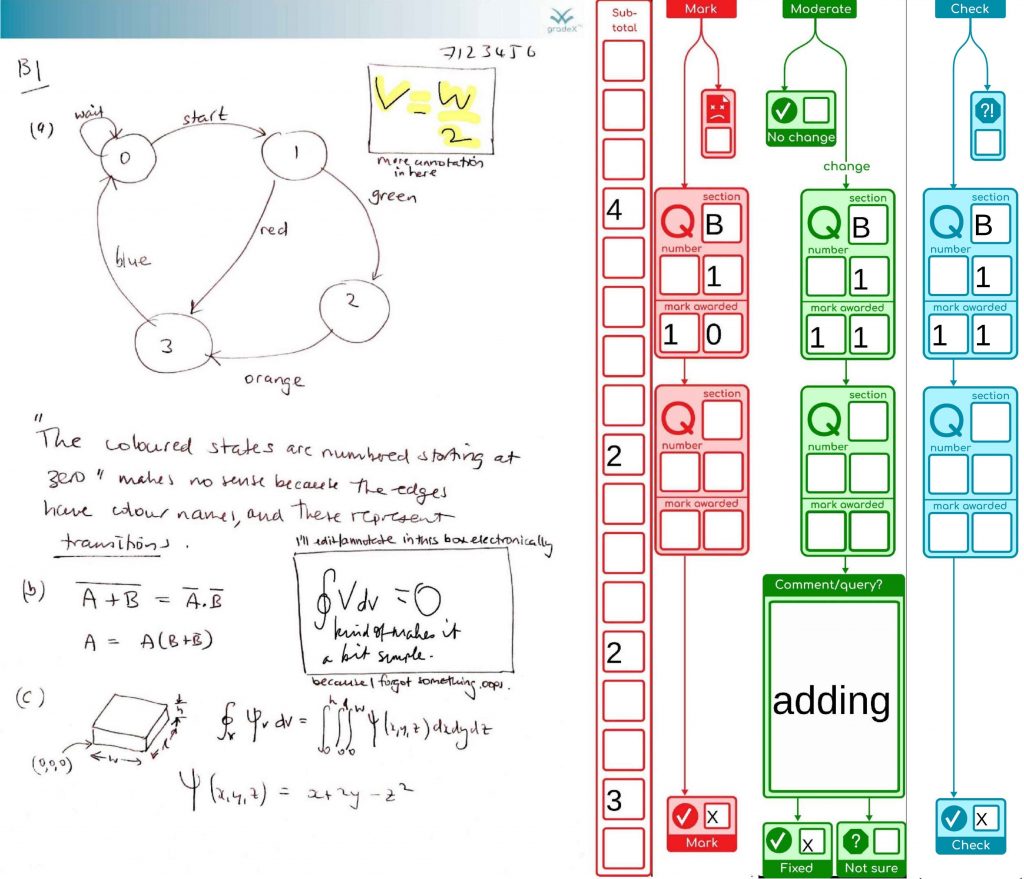 gradeX
7123456
B1
V = W
2
more annotation
in here
(a)
wait
start
0
1
green
red
blue
2
3
orange
"The coloured states are numbered starting at
zero" makes no sense because the edges
have colour names, and these represent
transitions.
I'll edit/annotate in this box electronically
∮ V dv = 0
kind of makes it
a bit simple.
because I forgot something, oops.
(b)
A̅+̅B̅ = A̅.B̅
A = A(B+B̅)
(c)
h
l
w
(0,0,0)
∮v ψv dv = ∫₀ʰ∫₀ˡ∫₀ʷ ψ(x,y,z) dx dy dz
ψ(x,y,z) = x+2y-z²
Sub-
total
4
2
2
3
Mark
section
Q B
number
1
mark awarded
1 0
section
Q
number
mark awarded
X
Mark
Moderate
No change
change
section
Q B
number
1
mark awarded
1 1
section
Q
number
mark awarded
Comment/query?
adding
X
Fixed
?
Not sure
Check
?!
section
Q B
number
1
mark awarded
1 1
section
Q
number
mark awarded
X
Check